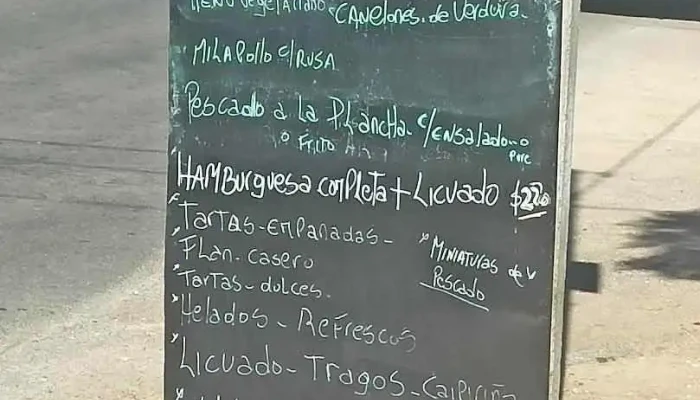 Menu vegetariano CANELONES. de Verdura.
MILAPOLLO C/RUSA
PESCADO A LA PLANCHA. C/ENSALADA O
O FRITO
PURE
HAMBURGUESA COMPLETA + LICUADO $220
TARTAS - EMPANADAS -
* MINIATURAS de
FLAN. CASERO
PESCADO
TARTAS - dulces.
HELADOS - REFRESCOS
LICUADO - TRAGOS - CAIPIRIÑA